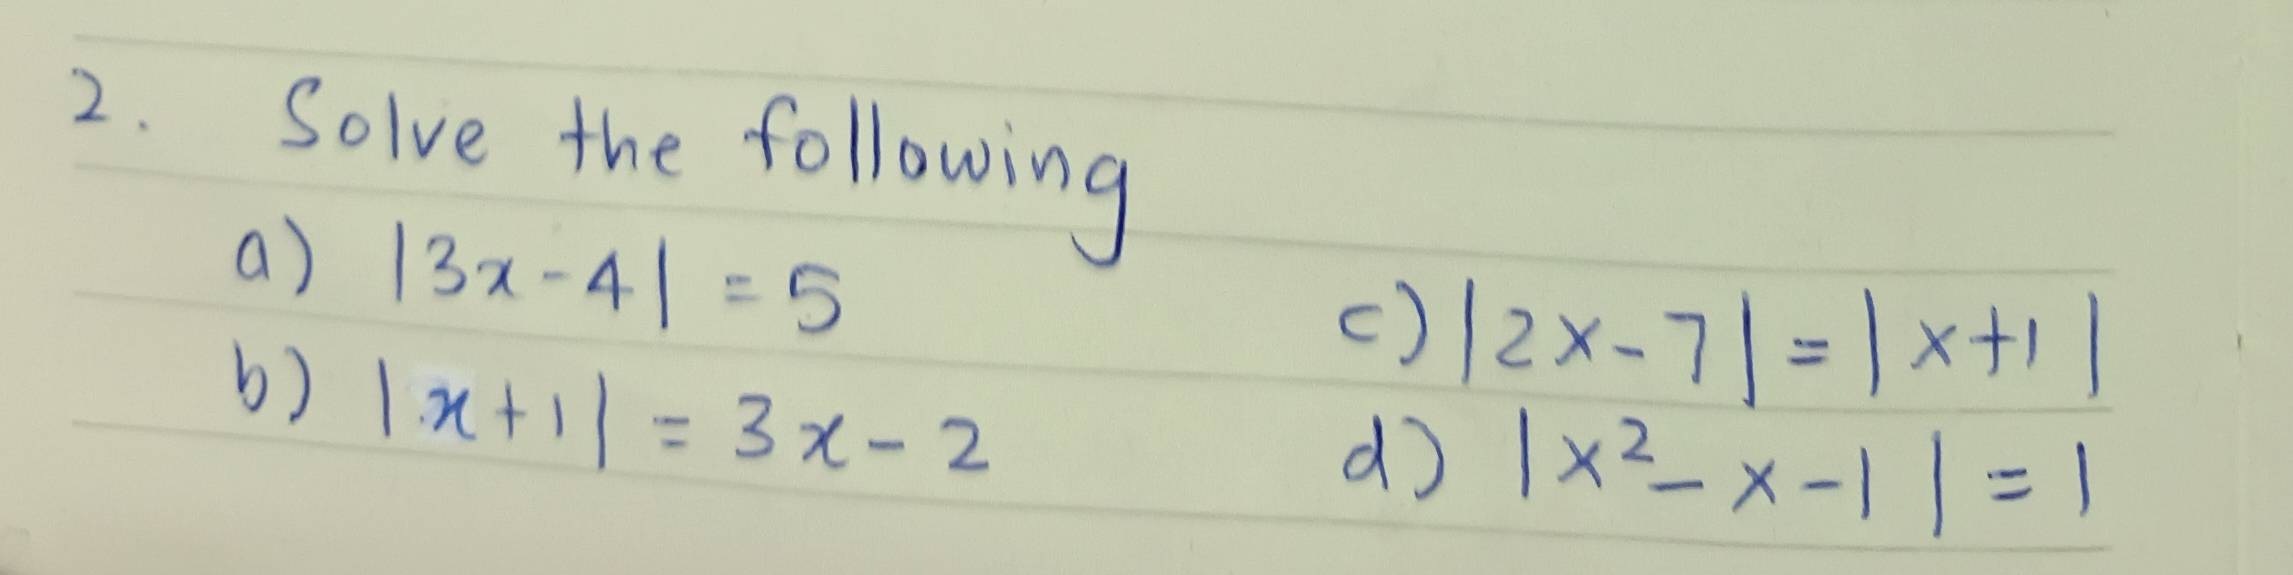 2. Solve the following
a) |3x-4| = 5
b) |x+1| = 3x-2
c) |2x-7| = |x+1|
d) |x²-x-1| = 1